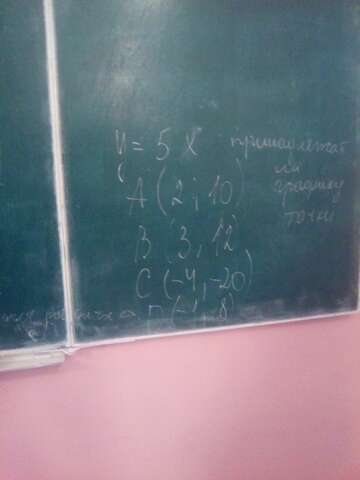 y = 5 x принадлежат
ли
графику
точки
A (2; 10)
B (3, 12)
C (-4, -20)